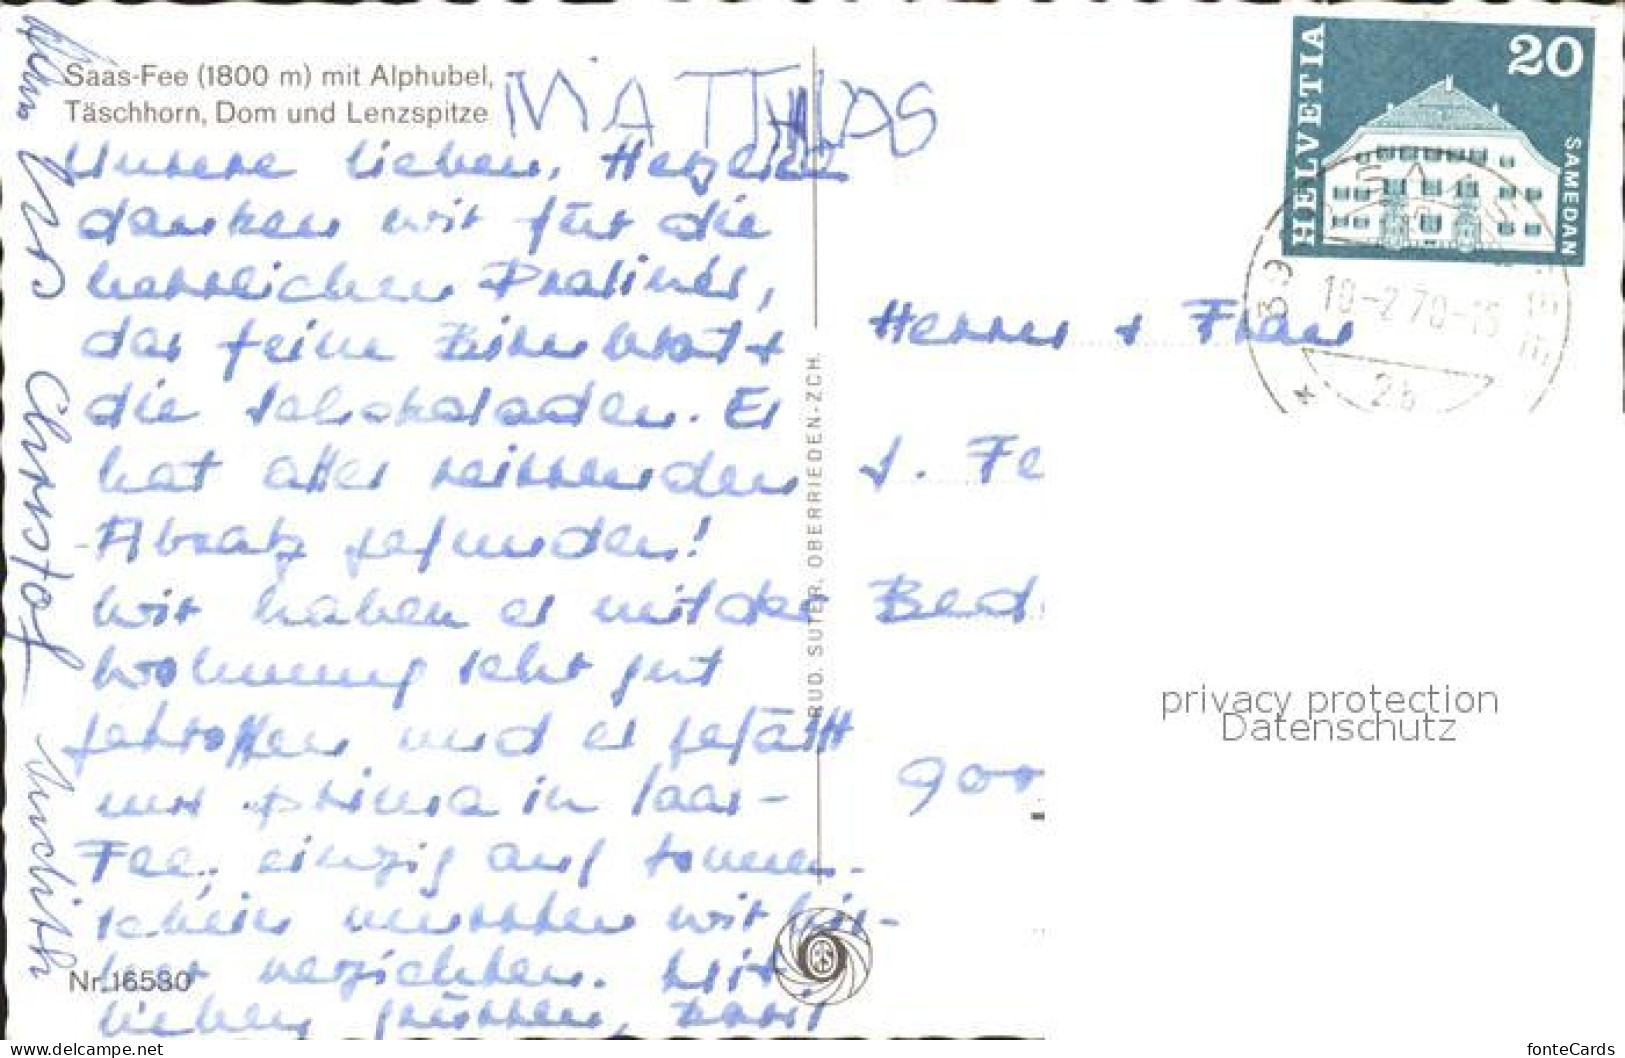 Saas-Fee (1800 m) mit Alphubel,
Täschhorn, Dom und Lenzspitze
MATTHIAS
Unsere lieben, Herzlich
danken wir für die
herrlichen Pralinés,
das feine Birnenbrot +
die Schokoladen. Es
hat alles reissenden
Absatz gefunden!
Wir haben es mit der
Wohnung sehr gut
getroffen und es gefällt
uns prima in Saas-
Fee, einzig auf Sonnen-
schein mussten wir bis-
her verzichten. Mit
lieben Grüssen,
Urs Christof Judith
Nr. 16530
RUD. SUTER, OBERRIEDEN-ZCH.
HELVETIA
20
SAMEDAN
10-2 70-15
2b
Herrn + Frau
900
privacy protection
Datenschutz
https://www.delcampe.net
fonteCards